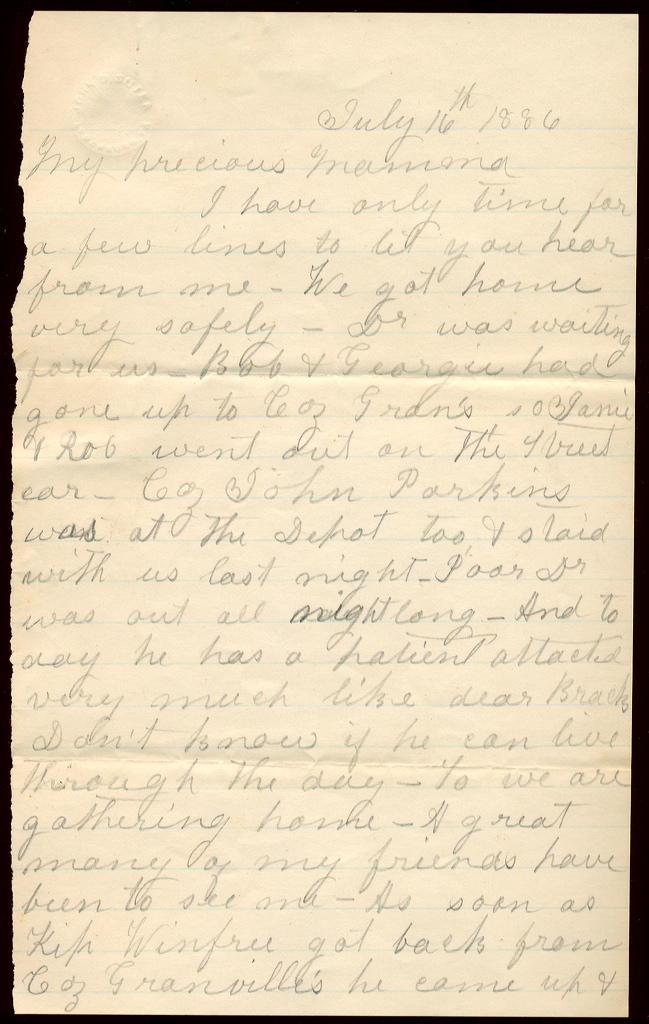 July 16th 1886
My precious Mamma
I have only time for
a few lines to let you hear
from me - We got home
very safely - Dr was waiting
for us - Bob & Georgie had
gone up to Coz Gran's so Janie
& Rob went out on the Street
car - Coz John Parkins
was at the Depot too & staid
with us last night - Poor Dr
was out all night long - And to
day he has a patient attacted
very much like dear Brack
Don't know if he can live
through the day - To we are
gathering home - A great
many of my friends have
been to see me - As soon as
Kip Winfree got back from
Coz Granville's he came up &